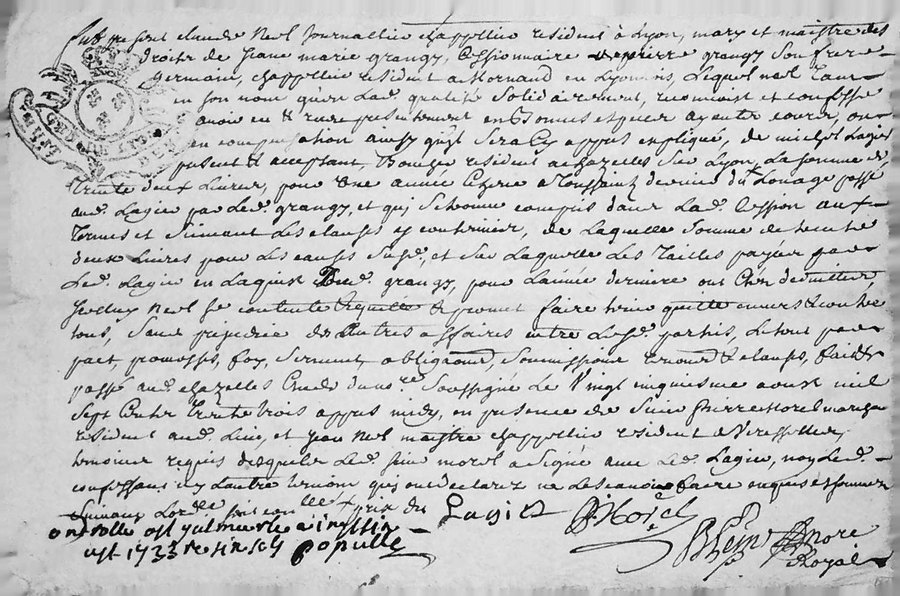 Fut present claude neel Journallier chappellier resident à Lyon, mary et maistre des
droits de Jeane marie grangy, Cessionnaire de pierre grangy Son frere
germain, chappellier resident a Mornand en Lyonnois, Lequel neel tant
en son nom qu'en Lad. qualité Solidairement, reconnoist et confesse
avoir eu & receu presentement en bonnes especes ayants cours, ou
en compensation ainsy qu'il Sera Cy appres expliqué, de michel Lagier
present & acceptant, resident a chazelles Sur Lyon, La Somme de
trente deux Livres, pour Une année Escheue a Toussaint derniere du Louage passé
aud. Lagier par Led. grangy, et qui Se trouve compris dans Lad. Cession aux
termes et Suivant Les clauses y contenues, de Laquelle Somme de trente
deux Livres pour Les causes Susd. et Sur Laquelle Les Tailles payées par
Led. Lagier en Laquit Dud. grangy, pour L'année derniere ont Esté deduittes,
Icelluy neel Se contente & promet faire tenir quitte envers & contre
tous, Sans prejudice des Autres affaires entre Lesd. parties, Le tout par
pact, promesses, foy, Serment, obligaons, Soumissions renonons & clauses, fait &
passé aud. chazelles Soussigné Le Vingt cinquiesme aoust mil
Sept Cents trente trois appres midy, en presence de Sieur Pierre Morel marchand
resident aud. Lieu, et Jean neel maistre chappellier resident a
temoins requis desquels Led. Sieur morel a Signé avec Led. Lagier, non Led.
confessant ny L'autre temoin qui ont declarez ne Le scavoir faire enquis & sommez
Suivant Lord.
Lagier PMorel
ontrolle
1733
Royal